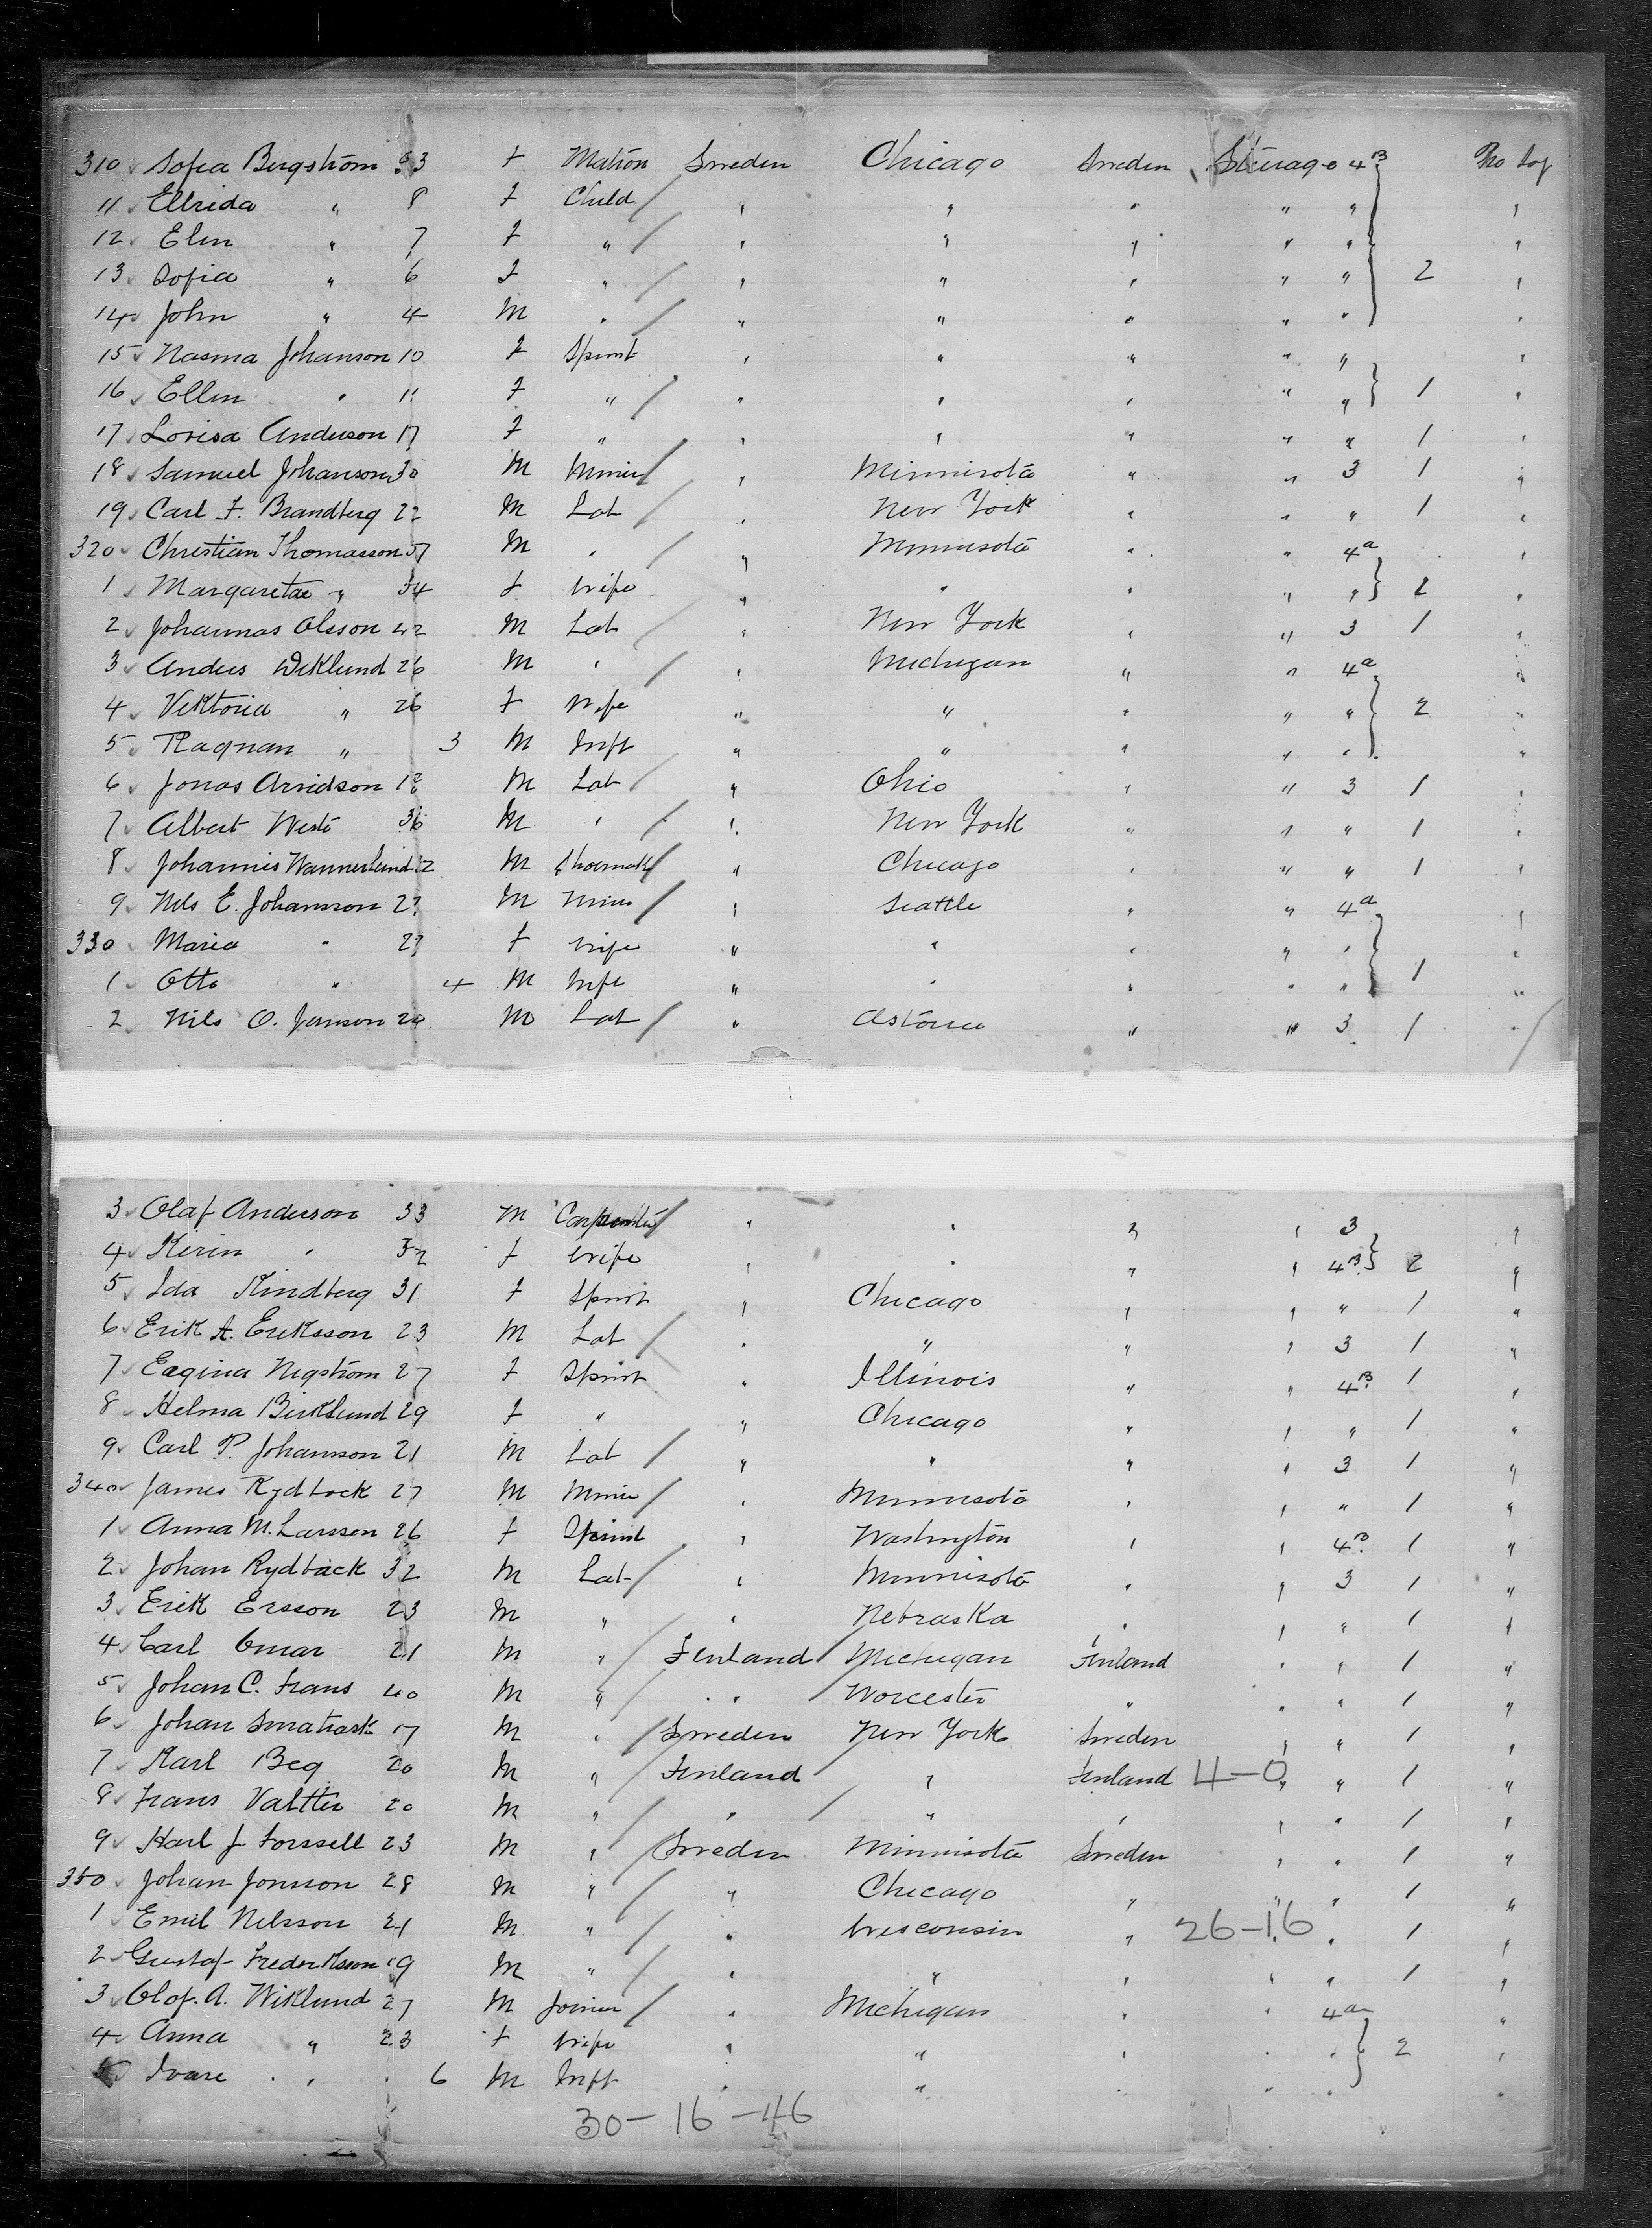 310 Sofia Bergström 33 f Matron Sweden Chicago Sweden Steerage 4B Pro Soj
11 Elbrida " 8 f Child " " " " " "
12 Elin " 7 f " " " " " " "
13 Sofia " 6 f " " " " " " 2 "
14 John " 4 M " " " " " " "
15 Nasma Johanson 10 f Spinst " " " " " "
16 Ellen " 11 f " " " " " " 1 "
17 Lovisa Anderson 17 f " " " " " " 1 "
18 Samuel Johanson 30 M Miner " Minnisota " " 3 1 "
19 Carl F. Brandberg 22 M Lab " New York " " " 1 "
320 Christian Thomasson 57 M " " Minnesota " " 4a "
1 Margareta " 54 f Wife " " " " " 2 "
2 Johannas Olsson 42 M Lab " New York " " 3 1 "
3 Anders Wiklund 26 M " " Michigan " " 4a "
4 Viktoria " 26 f Wife " " " " " 2 "
5 Ragnan " 3 M Inft " " " " " "
6 Jonas Arvidson 18 M Lab " Ohio " " 3 1 "
7 Albert Westö 36 M " " New York " " " 1 "
8 Johannis Wannerlund M Shoemak " Chicago " " " 1 "
9 Nils E. Johansson 27 M Miner " Seattle " " 4a "
330 Maria " 27 f Wife " " " " " "
1 Otto " 4 M Inft " " " " " 1 "
2 Nils O. Janson 28 M Lab " Astoria " " 3 1 "
3 Olaf Anderson 33 M Carpenter " " " " 3 "
4 Kirin " 32 f Wife " " " " 4B 2 "
5 Ida Kindberg 31 f Spinst " Chicago " " " 1 "
6 Erik A. Eriksson 23 M Lab " " " " 3 1 "
7 Eagina Nigström 27 f Spinst " Illinois " " 4B 1 "
8 Helma Birklund 29 f " " Chicago " " " 1 "
9 Carl P. Johansson 21 M Lab " " " " 3 1 "
340 James Rydback 27 M Miner " Minnesota " " " 1 "
1 Anna M. Larsson 26 f Spinst " Washington " " 4B 1 "
2 Johan Rydbäck 32 M Lab " Minnisota " " 3 1 "
3 Erik Ersson 23 M " " Nebraska " " " 1 "
4 Carl Omar 21 M " Finland Michigan Finland " " 1 "
5 Johan C. Frans 40 M " " Worcester " " " 1 "
6 Johan Smatrask 17 M " Sweden New York Sweden " " 1 "
7 Karl Beg 20 M " Finland " Finland 4-0 " " 1 "
8 Frans Valtter 20 M " " " " " " 1 "
9 Karl J Forssell 23 M " Sweden Minnisota Sweden " " 1 "
350 Johan Jonsson 28 M " " Chicago " " " 1 "
1 Emil Nilsson 21 M " " Wisconsin " 26-16 " 1 "
2 Gustaf Frederiksson 19 M " " " " " " 1 "
3 Olof. A. Wiklund 27 M Joiner " Michigan " " 4a "
4 Anna " 23 f Wife " " " " " 2 "
5 Ivare " 6 M Inft " " " " " "
30-16-46